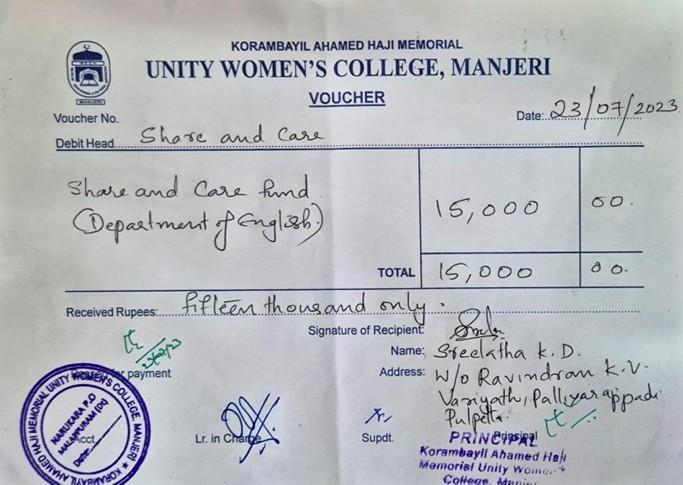 KORAMBAYIL AHAMED HAJI MEMORIAL
UNITY WOMEN'S COLLEGE, MANJERI
MANJERI
VOUCHER
Voucher No.
Date: 23/07/2023
Debit Head Share and Care
Share and Care fund 15,000 00.
(Department of English)
TOTAL 15,000 00.
Received Rupees: fifteen thousand only.
Signature of Recipient
Name: Sreelatha K.D.
for payment
Address: W/o Ravindran K.V.
Variyath, Palliyarappadi
Pulpetta
Acct. Lr. in Charge Supdt. Principal
PRINCIPAL
Korambayil Ahamed Haji
Memorial Unity Women's
College, Manjeri
KORAMBAYIL AHAMED HAJI MEMORIAL UNITY WOMEN'S COLLEGE, MANJERI
NARUKARA P.O
MALAPPURAM (Dt)
DATE: